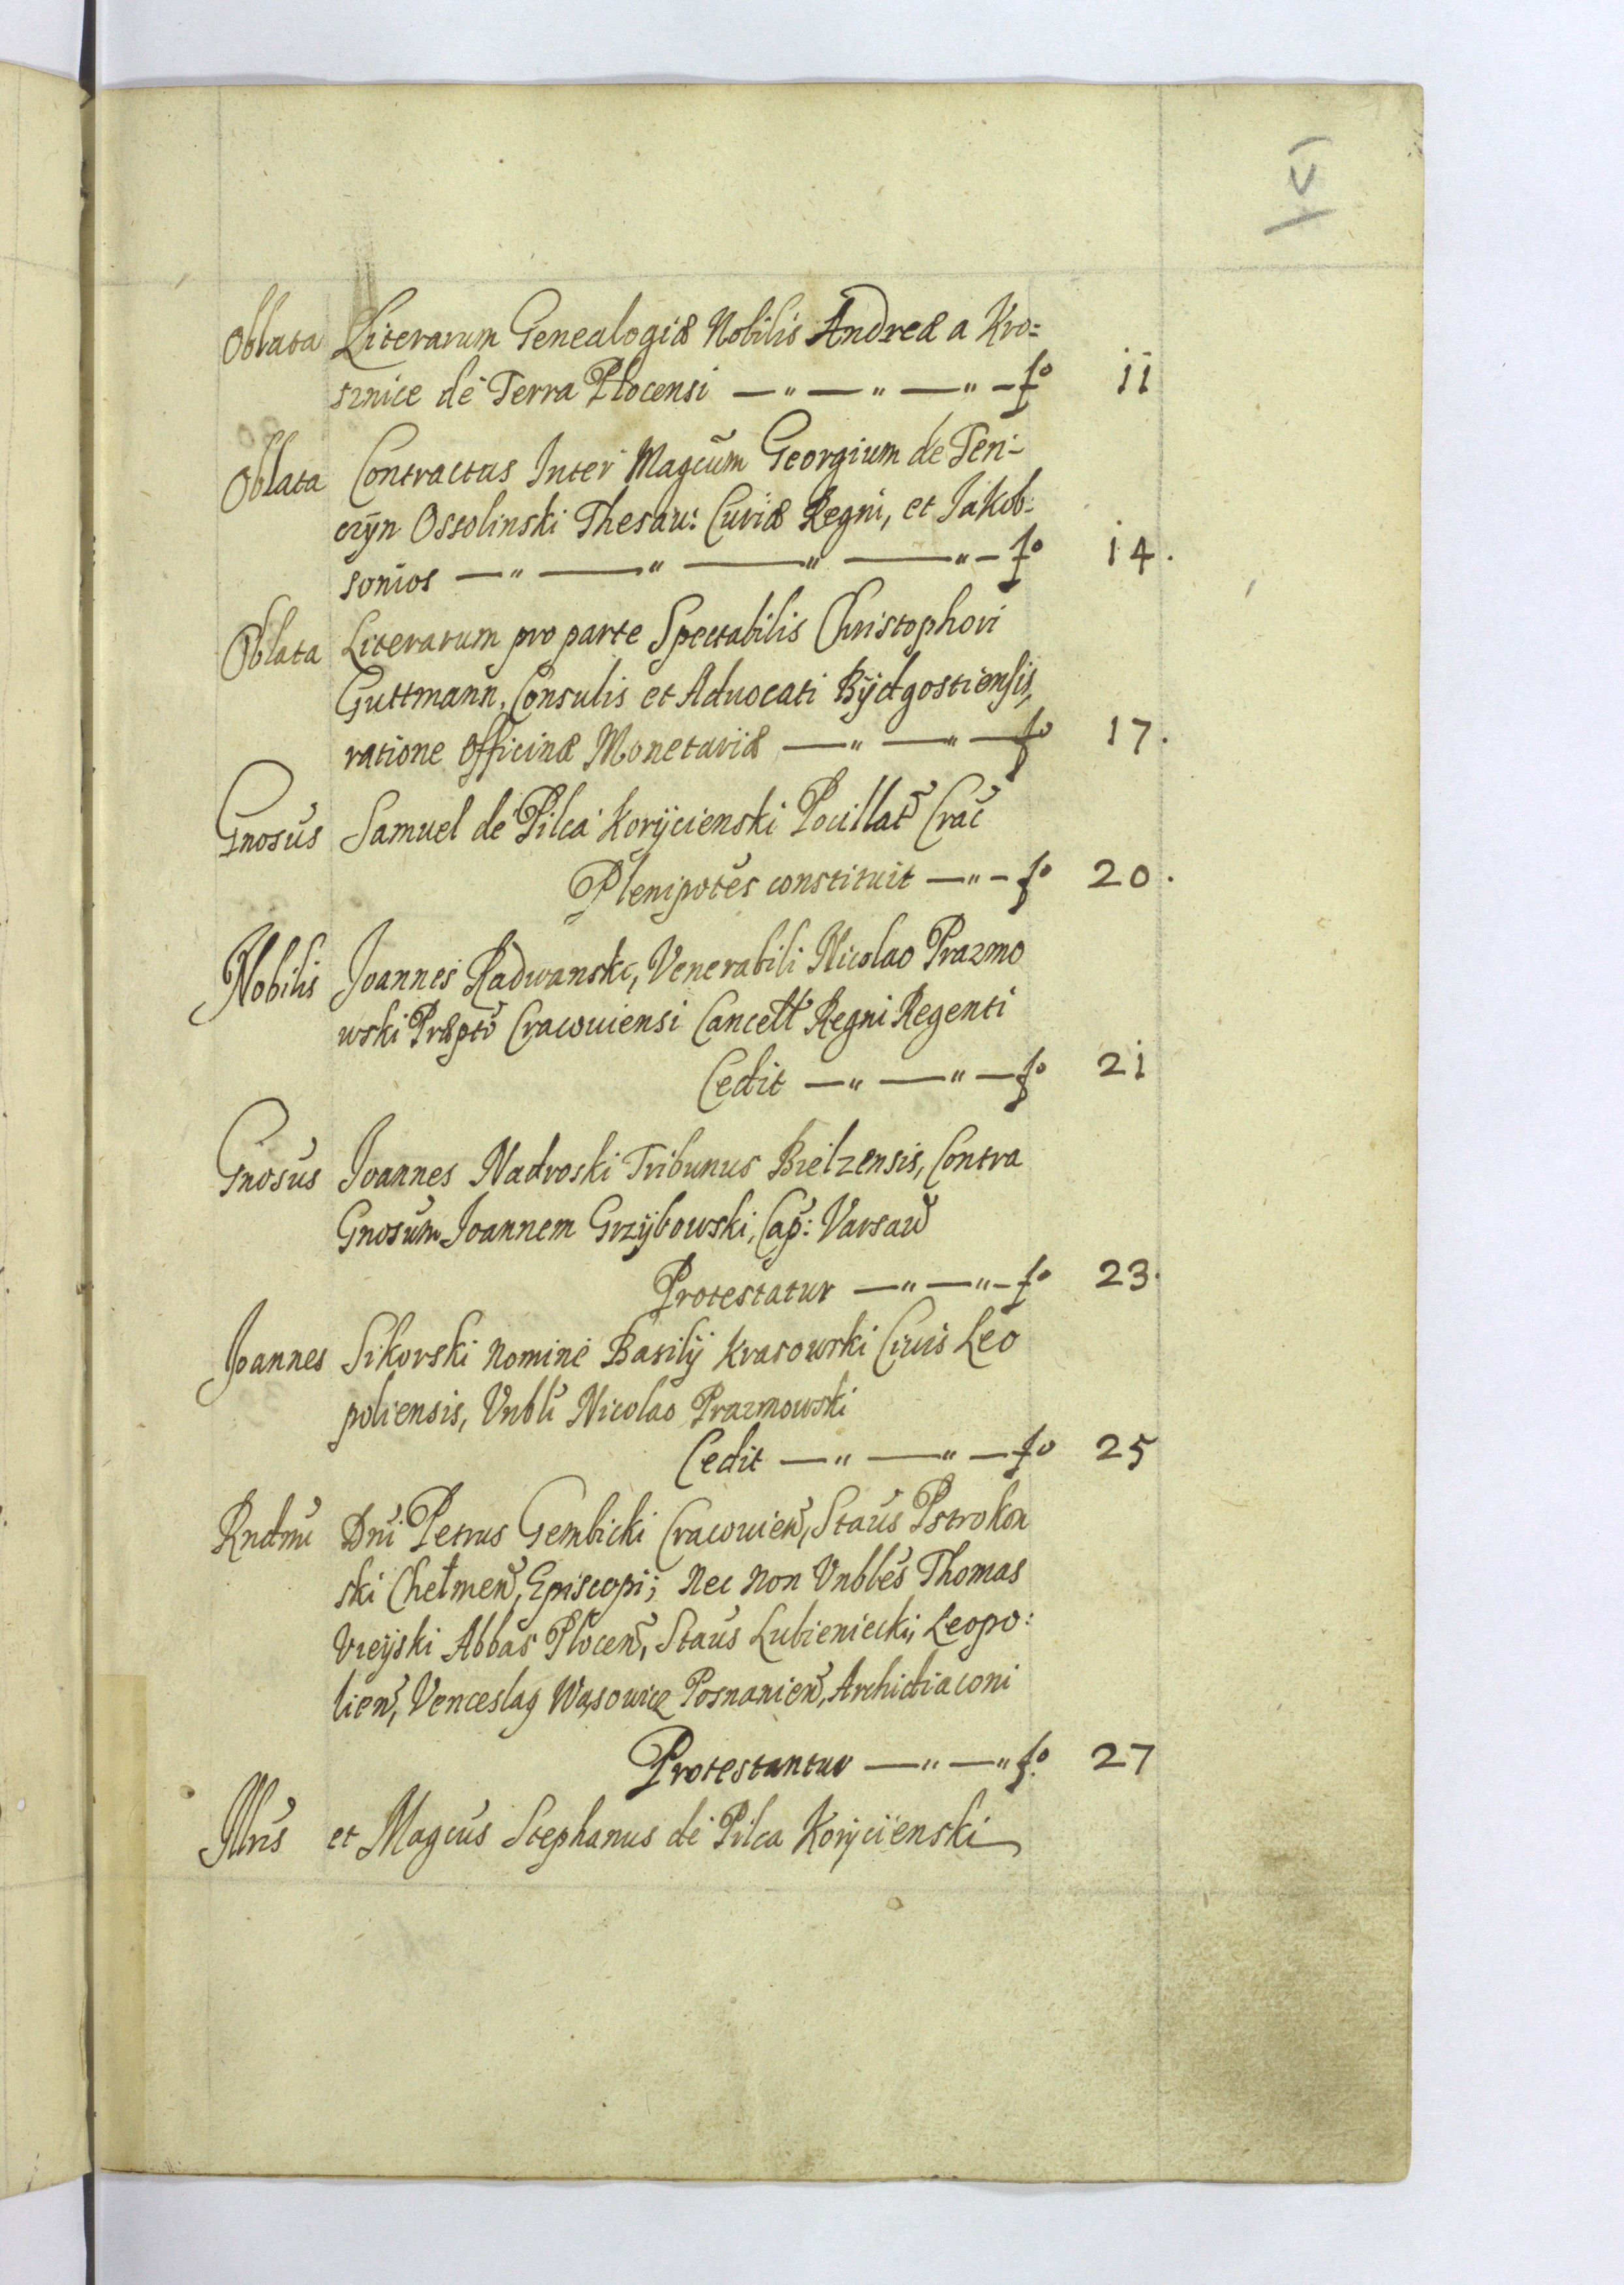 Oblata Literarum Genealogiæ Nobilis Andreæ a Kro=
sznice de Terra Plocensi —"—"—"— fo 11
Oblata Contractus Inter Magcum Georgium de Ten-
czÿn Ossolinski Thesau: Curiæ Regni, et Jakob:
sonios —"—"—"—"— fo 14.
Oblata Literarum pro parte Spectabilis Christophori
Guttmann, Consulis et Aduocati Bÿdgostiensis,
ratione Officinæ Monetariæ —"—"— fo 17.
Gnosus Samuel de Pilca Korÿcienski Pocillat Crac
Plenipotes constituit —"— fo 20.
Nobilis Joannes Radwanski, Venerabili Nicolao Prazmo
wski Præpto Cracouiensi Cancell Regni Regenti
Cedit —"—"— fo 21
Gnosus Joannes Nadroski Tribunus Bielzensis, Contra
Gnosum Joannem Grzÿbowski, Cap: Varsaw
Protestatur —"—"— fo 23.
Joannes Sikorski nomine Basilÿ Krasowski Ciuis Leo
poliensis, Vnbli Nicolao Prazmowski
Cedit —"—"— fo 25
Rndmi Dni Petrus Gembicki Cracouien, Staus Pstrokon
ski Chełmen, Episcopi; nec non Vnbles Thomas
Vieÿski Abbas Plocen, Staus Lubieniecki, Leopo:
lien, Venceslaq Wąsowicz Posnanien, Archidiaconi
Protestantur —"—" fo. 27
Illris et Magcus Stephanus de Pilca Korÿcienski